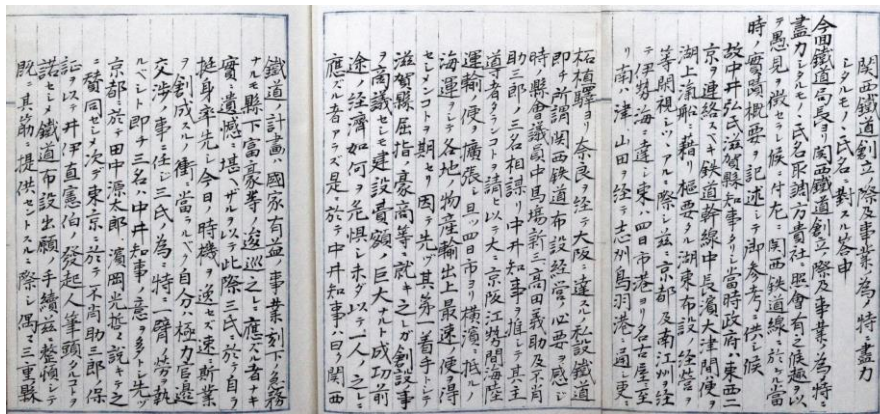 関西鐵道創立ノ際及事業ノ為特ニ盡力
シタルモノヽ氏名ニ對スル答申
今回鐵道局長ヨリ関西鐵道創立ノ際及事業ノ為ニ特ニ
盡力シタルモノヽ氏名取調方貴社ヘ照會有之候趣ヲ以
テ愚見ヲ徴セラレ候ニ付左ニ関西鐵道線ニ於ケル當
時ノ實蹟概要ヲ記述シテ御参考ニ供シ候
故中井弘氏滋賀縣知事タリシ當時政府ハ東西二
京ヲ連絡スベキ鉄道幹線中長濱大津間便ヲ
湖上滊船ニ藉リ枢要タル湖東布設ノ経営ヲ
等閑視シツヽアル際シ茲ニ京都及南江州ヲ経
テ伊勢海ニ達シ東ハ四日市港ヨリ名古屋ニ至
リ南ハ津山田ヲ経テ志州鳥羽港ニ通シ更ニ
柘植驛ヨリ奈良ヲ経テ大阪ニ達スル私設鐵道
即チ所謂関西鉄道布設経営ノ必要ヲ感ジ
時ノ縣會議員中馬場新三高田義助及不肖
助三郎ノ三名相謀リ中井知事ヲ推シテ其主
道者タランコトヲ請ヒ以テ大ニ京阪江勢間海陸
運輸ノ便ヲ擴張シ且ツ四日市ヨリ横濱ニ抵ルノ
海運ヲシテ各地ノ物産輸出上最速ノ便ヲ得
セシメンコトヲ期セリ因テ先ヅ其第一着手トシテ
滋賀縣屈指ノ豪商等ニ就キ之レガ創設事
ヲ商議セシモ建設費額ノ巨大ナルト成功前
途ノ経濟如何ヲ危惧シホダ以テ一人ノ之レニ
應ズル者アラズ是ニ於テ中井知事ハ曰ク関西
鐵道ノ計画ハ國家有益ノ事業刻下ノ急務
ナルモ縣下富豪等ノ逡巡之レニ應ズル者ナキ
實ニ遺憾ニ堪ヘザルヲ以テ此際三氏ニ於テ自ラ
挺身率先シ今日ノ時機ヲ逸セズ速ニ斯業
ヲ創成スルノ衝ニ當ラルベク自分ハ極力官邊
交渉ノ事ニ任シ三氏ノ為ニ特ニ一臂ノ労ヲ執
ルベシト即チ三名ハ中井知事ノ意ヲ多トシ先ヅ
京都ニ於テ田中源太郎濱岡光哲ニ説キテ之
ニ賛同セシメ次デ東京ニ於テ不肖助三郎ノ保
証ヲ以テ井伊直憲伯ノ發起人筆頭タルコトヲ
諾セシメ鐵道布設出願ノ手續茲ニ整頓シテ
既ニ其筋ニ提供セントスルノ際シ偶々三重縣